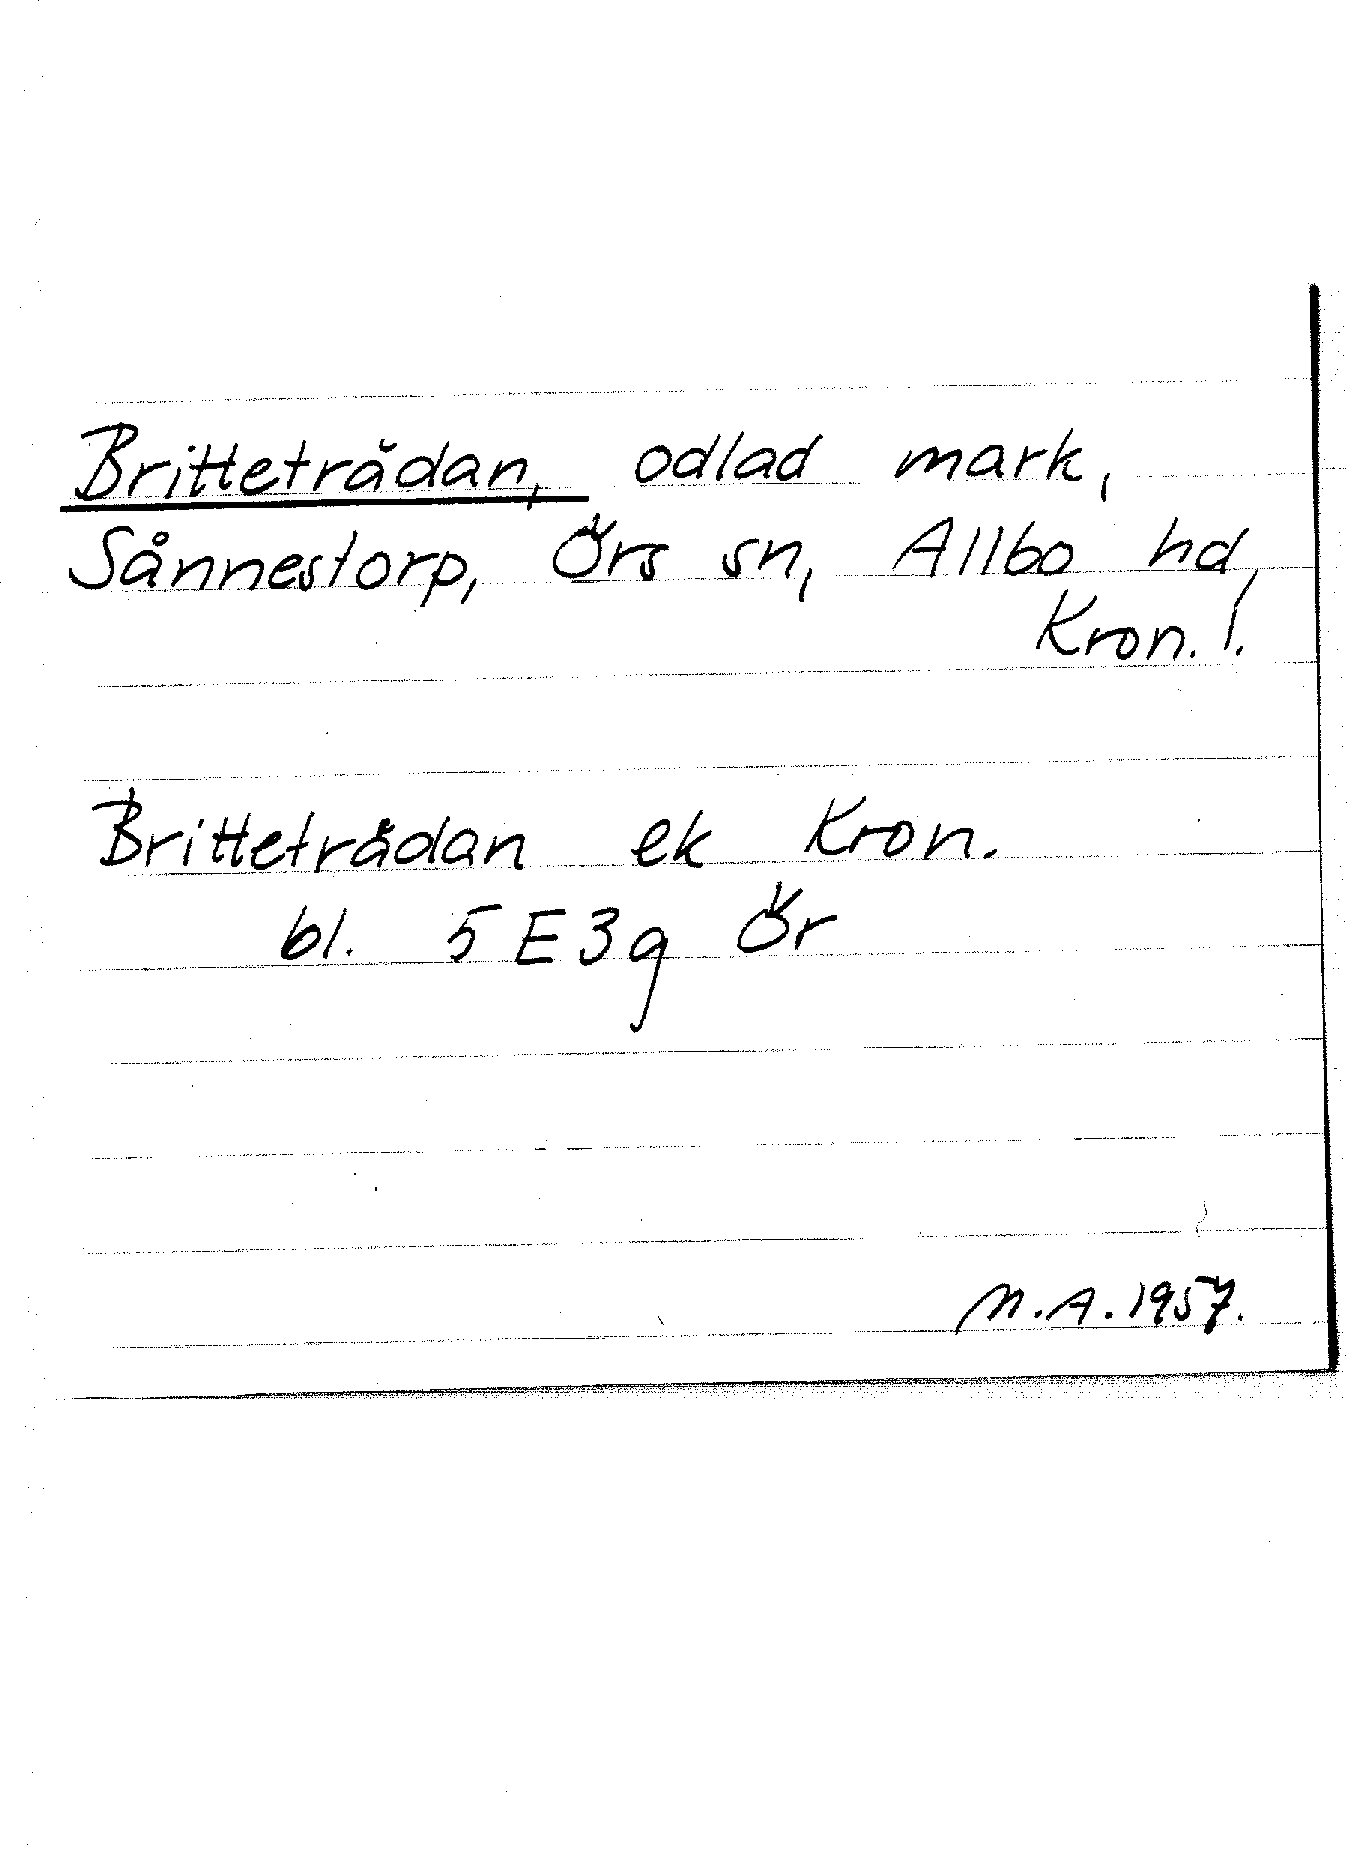 Britteträdan, odlad mark,
Sånnestorp, Örs sn, Allbo hd,
Kron. l.
Britteträdan ek Kron.
bl. 5E3g Ör
M.A. 1957.